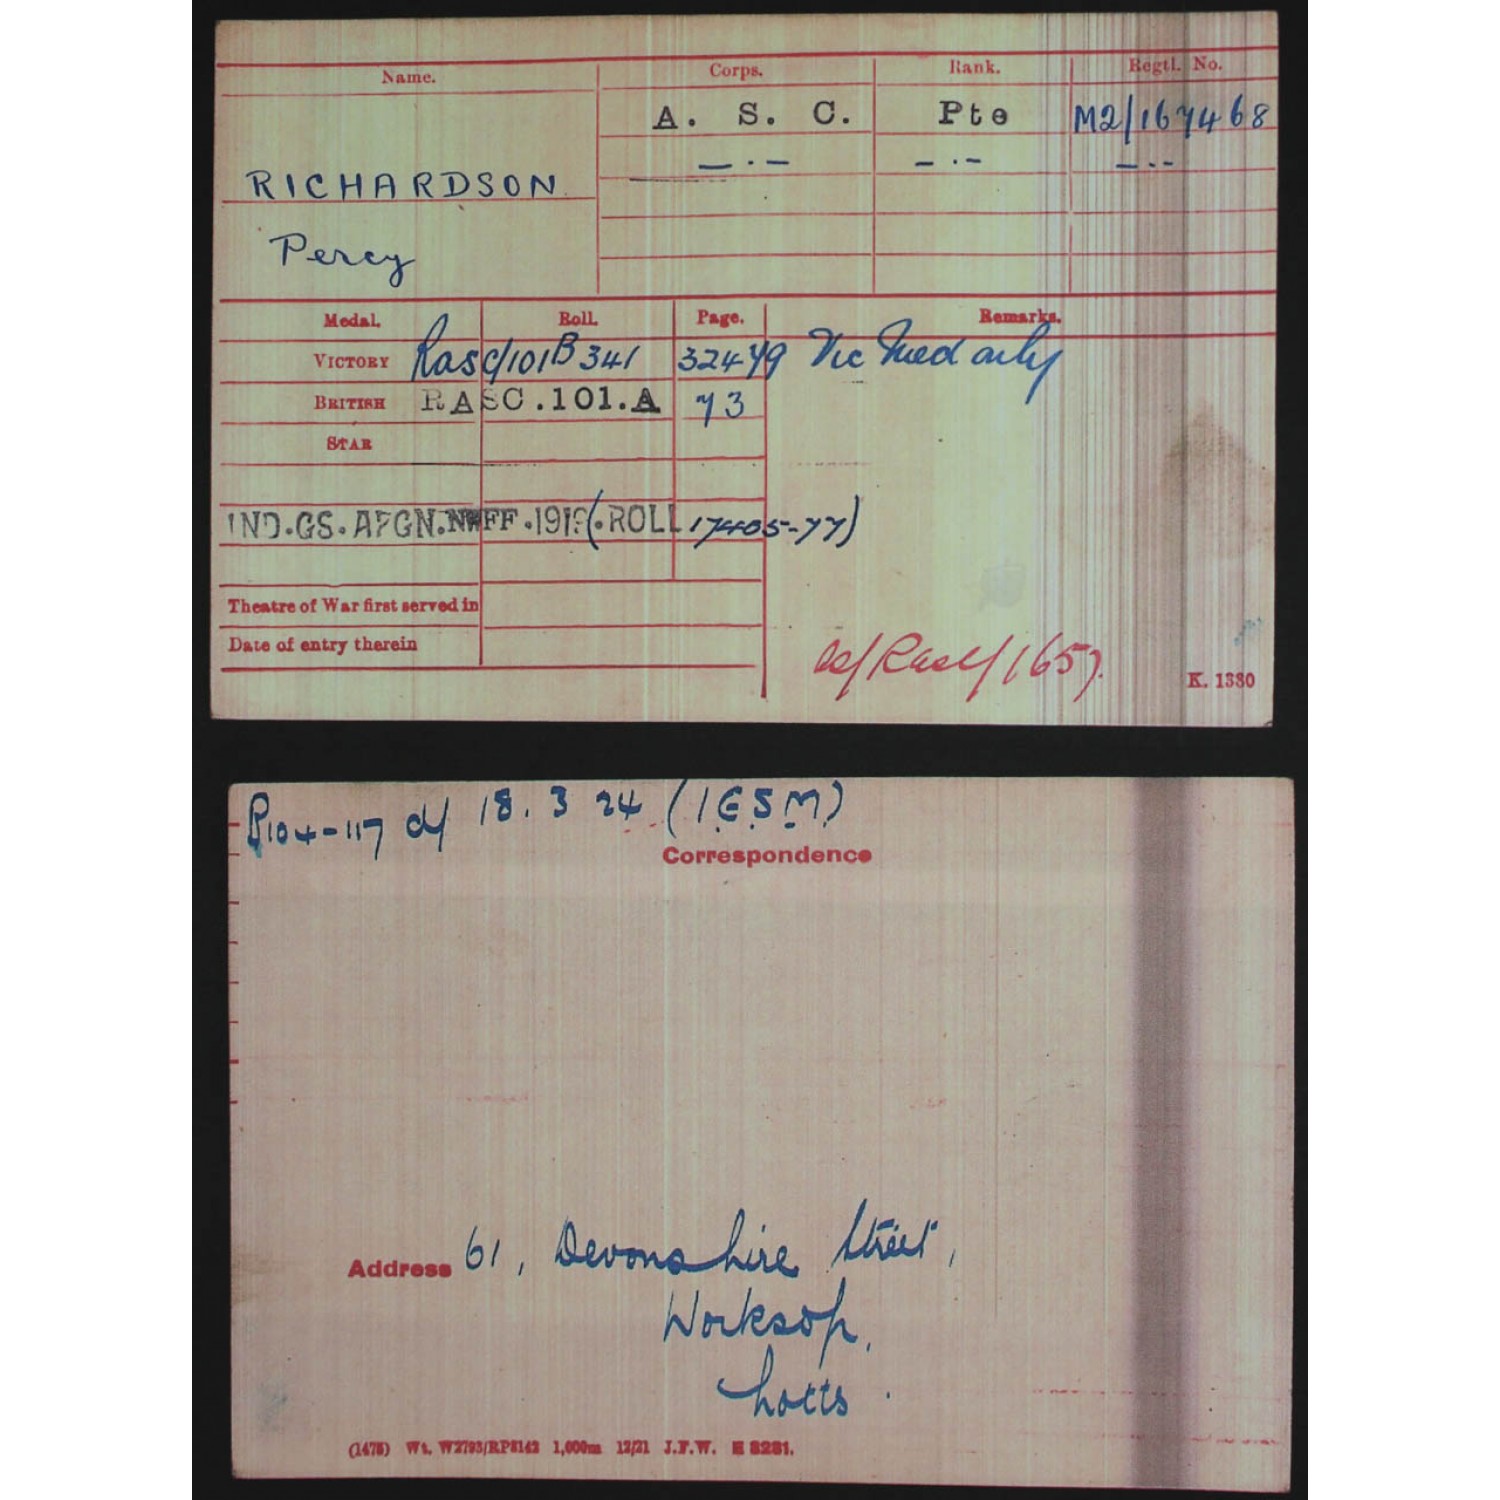 Name. Corps. Rank. Regtl. No.
A. S. C. Pte M2/167468
— · — — · — — · -
RICHARDSON
Percy
Medal. Roll. Page. Remarks.
VICTORY Rasc/101B341 32479 Vic Med only
BRITISH RASC.101.A 73
STAR
IND.GS.AFGN.NWFF.1919(.ROLL 17405-77)
Theatre of War first served in
Date of entry therein
K. 1380
P104-117 df 18. 3 24 (I.G.S.M.)
Correspondence
Address 61, Devonshire Street,
Worksop,
Notts.
(1475) Wt. W2793/RP8142 1,000m 12/21 J.F.W. E 8281.